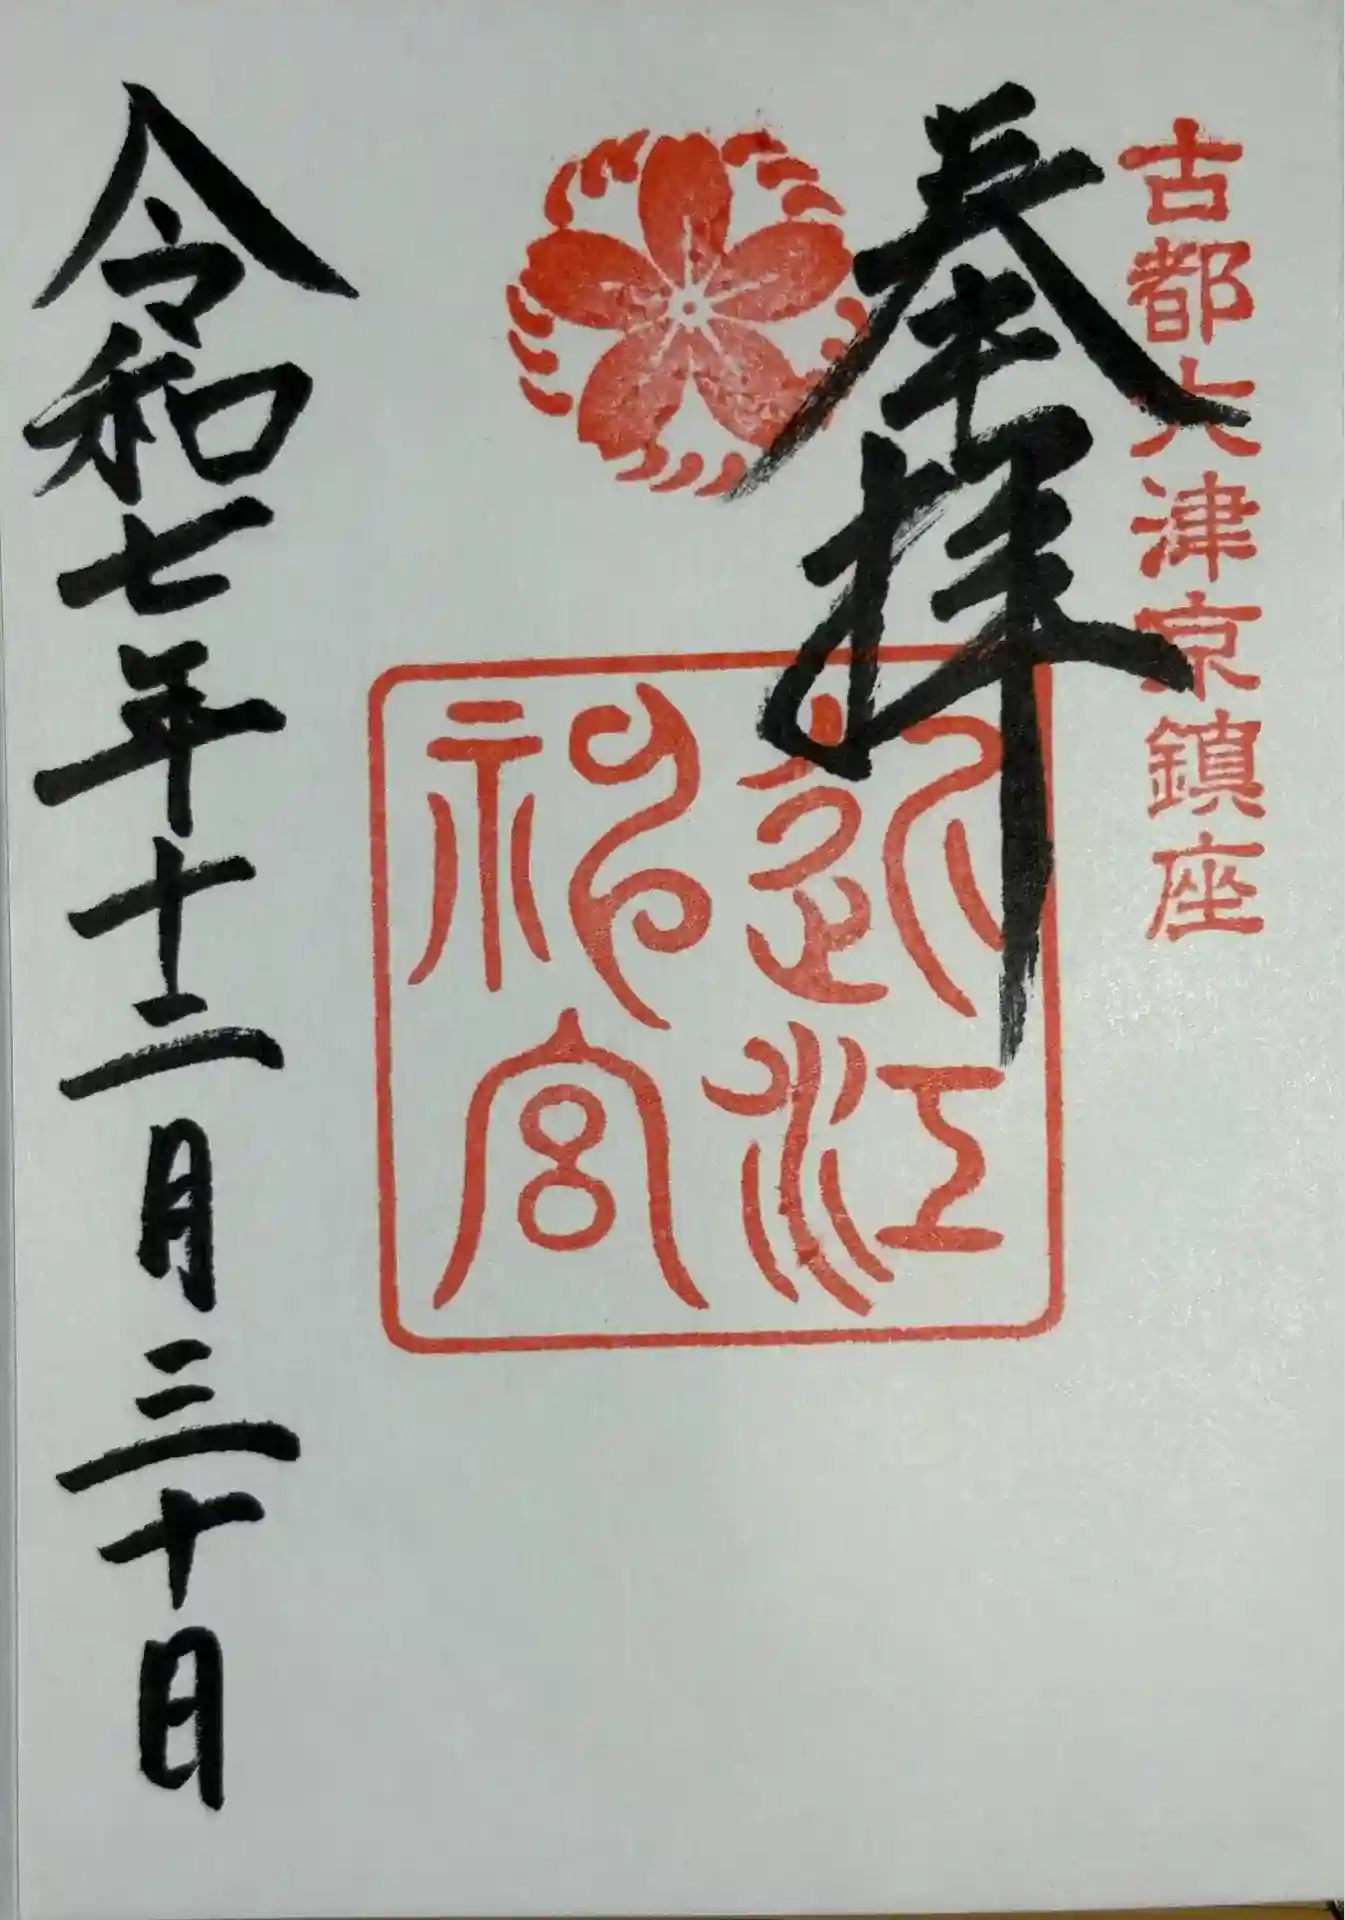 古都大津京鎮座
奉拝
近江
神宮
令和七年十二月三十日